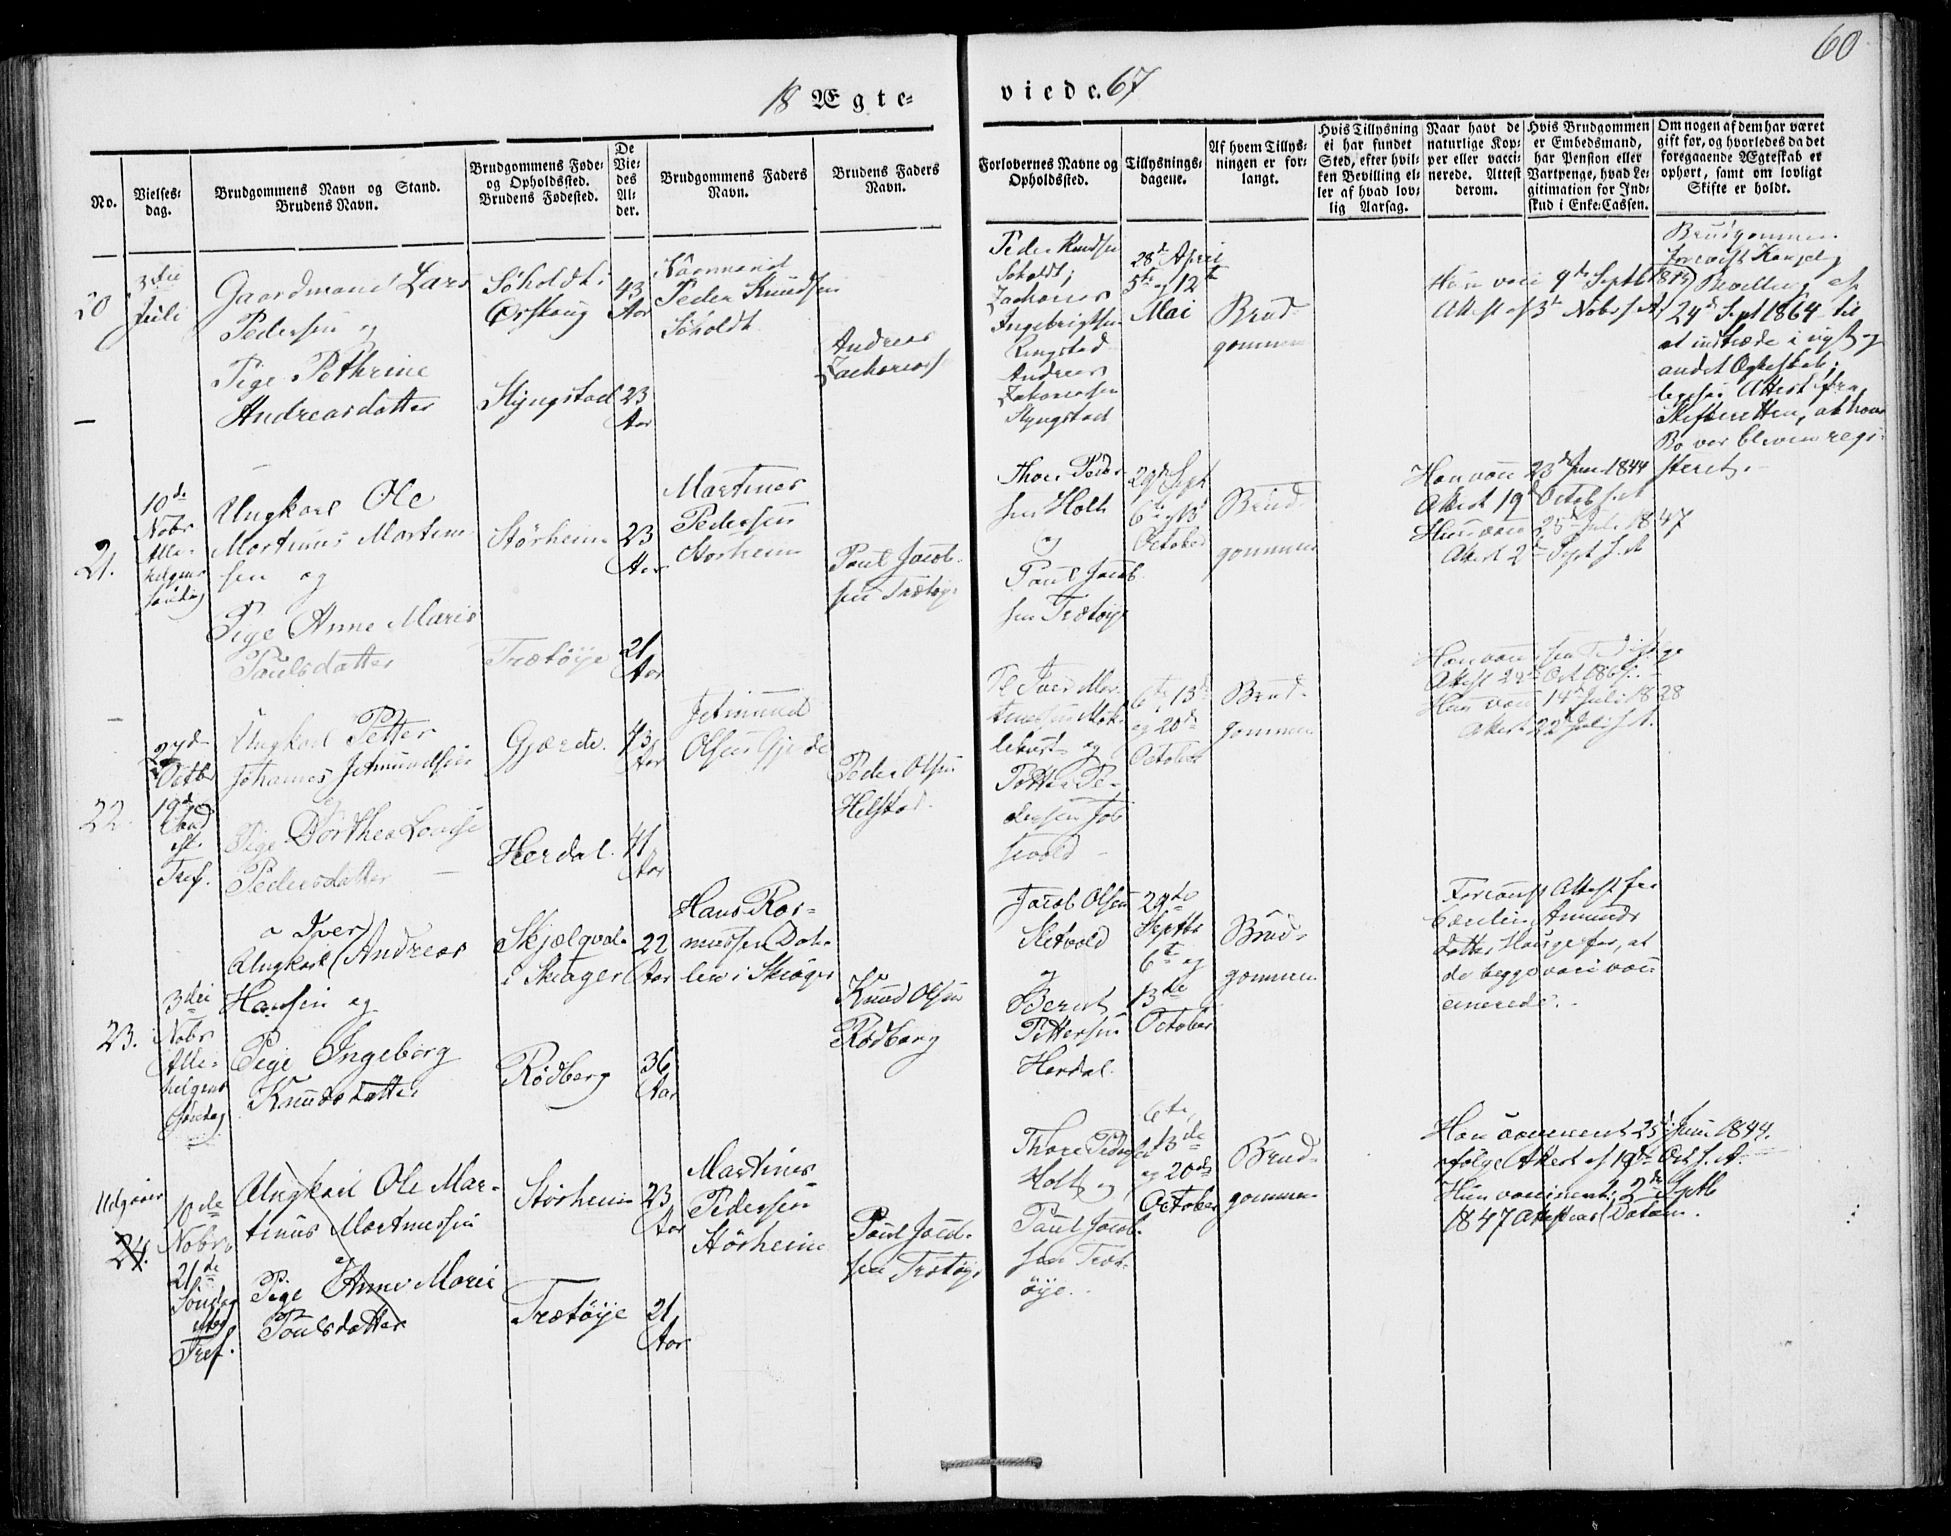 60
18 Ægte=
viede. 67
No.
Vielses-
dag.
Brudgommens Navn og Stand.
Brudens Navn.
Brudgommens Føde-
og Opholdssted.
Brudens Fødested.
De
Vie-
des
Al-
der.
Brudgommens Faders
Navn.
Brudens Faders
Navn.
Forlovernes Navne og
Opholdssted.
Tillysnings-
dagene.
Af hvem Tillys-
ningen er for-
langt.
Hvis Tillysning
ei har fundet
Sted, efter hvil-
ken Bevilling el-
ler af hvad lov-
lig Aarsag.
Naar havt de
naturlige Kop-
per eller vacci-
nerede. Attest
derom.
Hvis Brudgommen
er Embedsmand,
har Pension eller
Vartpenge, hvad Le-
gitimation for Ind-
skud i Enke-Cassen.
Om nogen af dem har været
gift før, og hvorledes da det
foregaaende Ægteskab er
ophørt, samt om lovligt
Skifte er holdt.
20
3die
Juli
Gaardmand Lars
Pedersen og
Pige Pethrine
Andreasdatter
Søholdt i
Ørskoug
Slyngstad
43
Aar
23
Aar
Peder Knudsen
Søholdt
Andreas
Zacharias
Peder Knudsen
Søholdt;
Zacharias
Ingebrigtsen
Ringstad
Andreas
Zakariasen
Slyngstad
28de April
5te og 12te
Mai
Brud-
gommen
Attest af 3te Nobr s. A.
Brudgommen
Bevilling af
24de Sept 1864 til
at indtræde i nyt og
andet Ægteskab;
Attest fra
Skifteretten, at hans
Bo var bleven regi-
streret.
21.
10de
Nobr
Alle-
helgens
Søndag
Ungkarl Ole
Martinus Martin-
sen og
Pige Anne Marie
Paulsdatter
Størheim
Trætøye
23
Aar
21
Aar
Martinus
Pedersen
Størheim
Paul Jacob-
sen Trætøye
Thore Peder-
sen Holth
og
Paul Jacob-
sen Trætøye
29de Sept
6te og 13de
October
Brud-
gommen
Han vacc 23de Juni 1844
Attest 19de Octob s. A
Hun vacc 25de Juli 1847
Attest 2de Sept s. A
22.
27de
Octbr
19de
Sønd
eft.
Tref.
Ungkarl Petter
Johannes Jetmundsen
og
Pige Dorthea Lovise
Pedersdatter
Gjærde.
Herdal.
43
Aar
41
Aar
Jetmund
Olsen Gjerde
Peder Olsen
Helstad.
Petter Pe-
dersen
6te, 13de
og 20de
October
Brud-
gommen
Hun vacc 14de Juli 1828
Attest 22de Juli s. A.
23.
3die
Nobr
Alle-
helgens
Søndag
Iver
Ungkarl Andreas
Hansen og
Pige Ingeborg
Knudsdatter
i Skiager
Rødberg
22
Aar
36
Aar
Hans Ras-
mussen Dah-
len i Skiager
Knud Olsen
Rødberg
Jacob Olsen
Sletvold
og
Bernt
Pettersen
Herdal.
29de
Septbr
6te og
13de
October
Brud-
gommen
Forevist Attest for
Amunds
datter Hauge for, at
de begge vare vacci-
nerede.
Udgaaer
24.
10de
Nobr.
21de
Søndag
efter
Tref.
Ungkarl Ole Mar-
tinus Martinussen
og
Pige Anne Marie
Paulsdatter
Størheim
Trætøye
23
Aar
21
Aar
Martinus
Pedersen
Størheim
Paul Jacob-
sen Trætøye
Thore Pedersen
Holth og
Paul Jacob-
sen Træt-
øye.
6te,
13de
og 20de
October
Brud-
gommen
Han vaccineret 25de Juni 1844.
ifølge Attest af 19de Oct. s. A.
Hun vaccineret 2de Septb
1847 Attestens Datum.